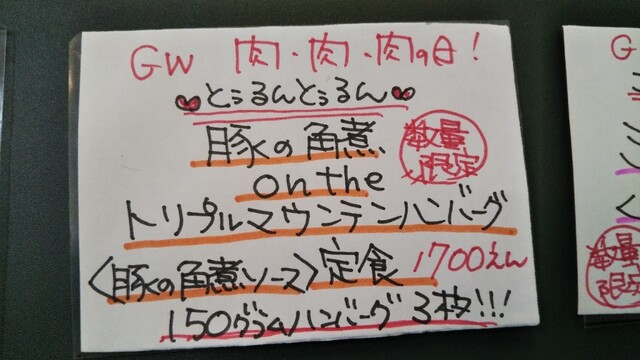 GW 肉・肉・肉の日！
とぅるんとぅるん
豚の角煮
数量
限定
on the
トリプルマウンテンハンバーグ
〈豚の角煮ソース〉定食 1700えん
150グラムハンバーグ 3枚!!!
G
く
数量
限定